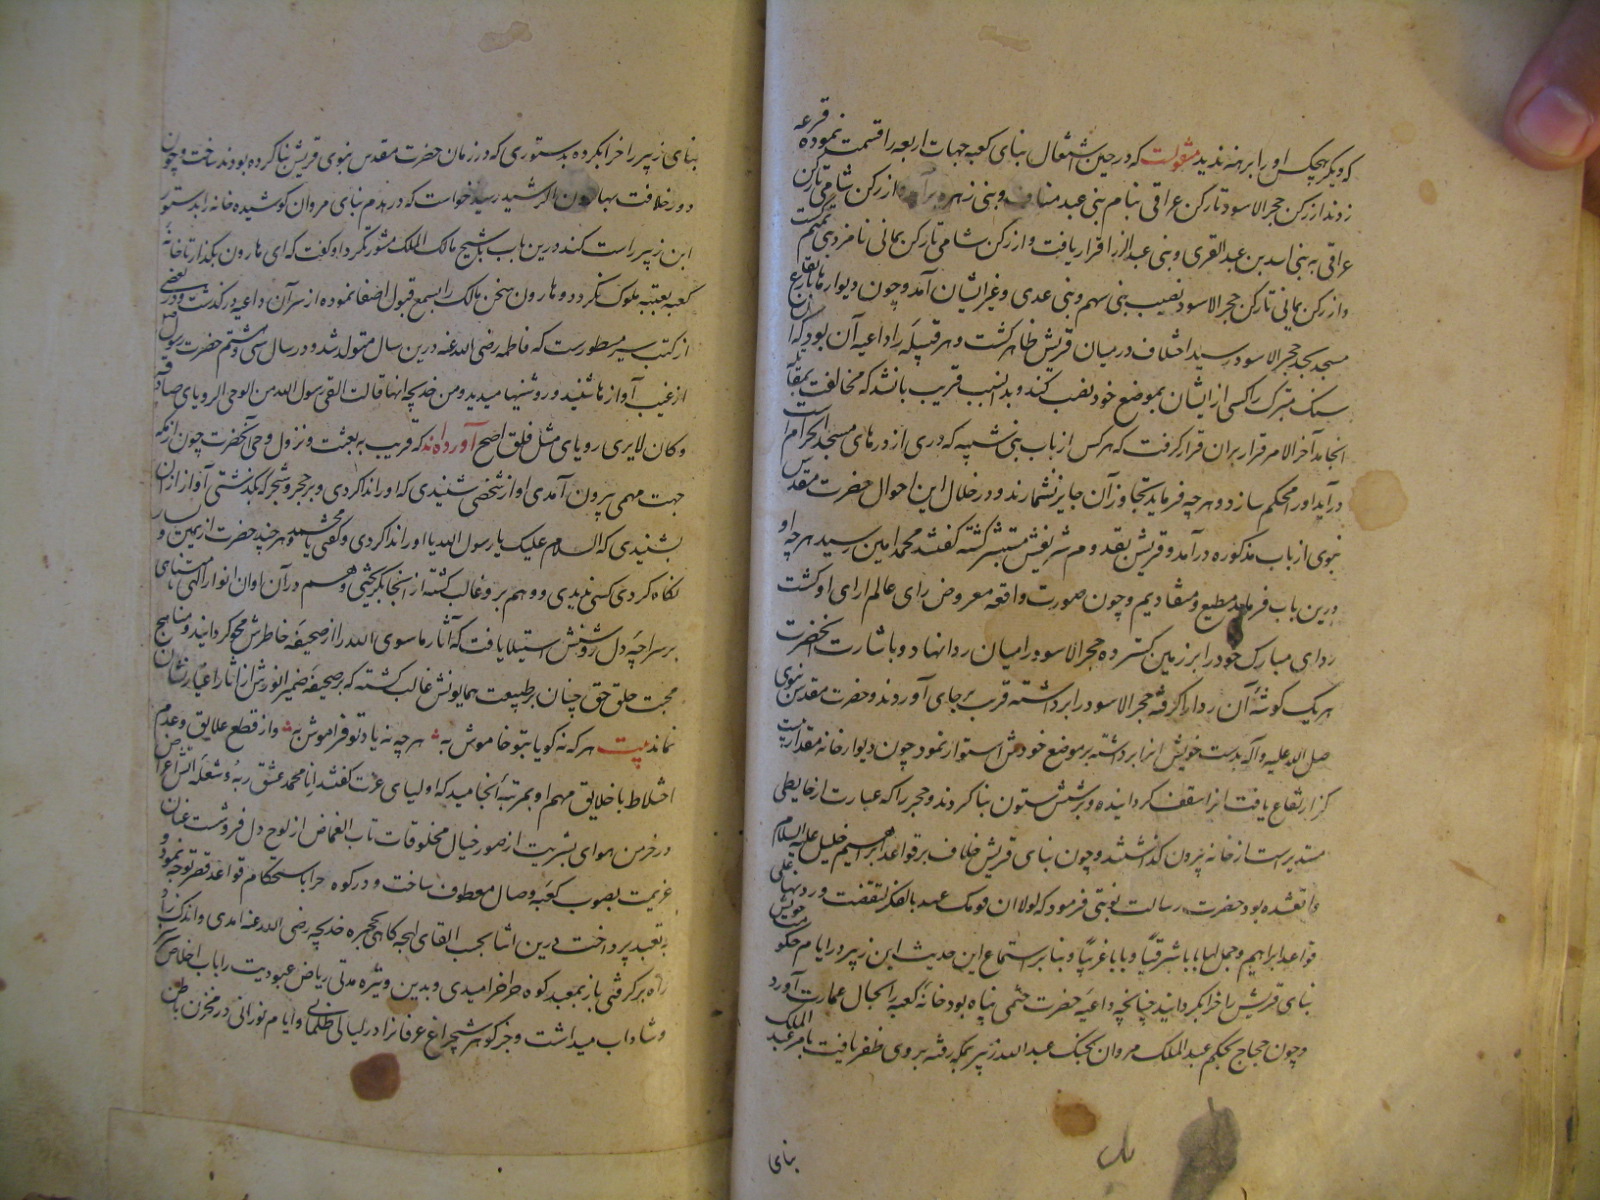 که دیگر هیچکس او را برهنه ندید منقولست که در حین اشتغال بنای کعبه جهات اربعه را قسمت نموده قرعه
زدند از رکن حجر الاسود تا رکن عراقی بنام بنی عبد مناف و بنی زهره برآمد و از رکن شامی تا رکن
عراقی به بنی اسد بن عبد العزی و بنی عبد الدار قرار یافت و از رکن شامی تا رکن یمانی نامزد بنی تمیم گشت
و از رکن یمانی تا رکن حجر الاسود نصیب بنی سهم و بنی عدی و غیر ایشان آمد و چون دیوارها بارتفاع
مسجد بحد حجر الاسود رسید اختلاف در میان قریش ظاهر گشت و هر قبیله را داعیه آن بود که آن
سنک متبرک را کسی از ایشان بموضع خود نصب کند و بدانسبب قریب بانشد که مخالفت بمقاتله
انجامد آخر الامر قرار بران قرار گرفت که هر کس از باب بنی شیبه که دری از درهای مسجد الحرام است
درآید او را محکم سازد و هر چه فرماید تجاوز آن جایز نشمارند و در خلال این احوال حضرت مقدس
نبوی از باب مذکوره درآمد و قریش بقدوم شریفش مستبشر گشته گفتند محمد امین رسید هر چه او
درین باب فرماید مطیع و منقادیم و چون صورت واقعه معروض رای عالم ارای او گشت
ردای مبارک خود را بر زمین گسترده حجر الاسود را میان ردا نهاد و باشارت آنحضرت
هر یک گوشهٔ آن ردا را گرفته حجر الاسود را برداشته قریب بر جای آوردند و حضرت مقدس نبوی
صلی الله علیه و آله بدست خویش انرا برداشته بر موضع خودش استوار نمود چون دیوار خانه مقدار بیست
گز ارتفاع یافت انرا سقف گردانیده و بر شش ستون بنا کردند و حجر را که عبارت از حایطی
مستدیر است از خانه بیرون گذاشتند و چون بنای قریش خلاف بر قواعد ابراهیم خلیل علیه السلام
واقعشده بود حضرت رسالت نوبتی فرمود که لولا ان قومک عهد بالکفر لنقضت و رددتها علی
قواعد ابراهیم و جعل لها بابا شرقیا و بابا غربیا و بنا بر استماع این حدیث ابن زبیر در ایام حکومت خویش
بنای قریش را خراب گردانید چنانچه داعیه حضرت ختمی پناه بود خانه کعبه را بحال عمارت آورد
و چون حجاج بحکم عبد الملک مروان بجنک عبد الله زبیر بمکه رفته بر وی ظفر یافت بامر عبد الملک
بنای
بنای زبیر را خراب کرده بدستوری که در زمان حضرت مقدس نبوی قریش بنا کرده بودند ساخت و چون
دور خلافت بهارون الرشید رسید خواست که در هدم بنای مروان کوشیده خانه را بدستور
ابن زبیر راست کند درین باب بشیخ مالک الملک مشورت کرد او گفت که ای هارون بگذار تا خانهٔ
کعبه بعتبه ملوک نگردد و هارون سخن مالک را بسمع قبول اصغا نموده از سر آن داعیه درگذشت و در بعضی
از کتب سیر مسطورست که فاطمه رضی الله عنه درین سال متولد شد و در سال سی و هشتم حضرت رسول
از غیب آوازها شنید و روشنیها میدید و من خدیجه انها قالت القی رسول الله من الوحی الرویای صادقه
و کان لایری رویای مثل فلق اصبح آورده‌اند که قریب به بعثت و نزول وحی آنحضرت چون از مکه
جهت مهمی بیرون آمدی اواز شخصی شنیدی که او را ندا کردی و بر حجر و شجر که بگذشتی آواز از ان
بشنیدی که السلام علیک یا رسول الله یا او را ندا کردی و گفتی یا محمد و هر چند حضرت از یمین و یسار
نگاه کردی کسی ندیدی و وهم برو غالب گشته از آنجا بگریختی و هم در آن اوان انوار الهی
بر سراچه دل روشنش استیلا یافت که آثار ماسوی الله را از صحیفه خاطرش محو گردانید و مناهج
محبت حق چنان بر طبیعت همایونش غالب گشته که بر صحیفه ضمیر انورش از اثار اغیار نشان
نماند بیت هر که نه گویا بتو خاموش به هر چه نه یاد تو فراموش به و از قطع علایق و عدم
اختلاط با خلایق مهم او بمرتبهٔ انجامید که اولیای عزت گفتند انا محمد عشق ربه و شعله آتش اعراض
در خرمن هوای بشریت از صور خیال مخلوقات تاب الغماض از لوح دل فروشست عنان
عزیمت بصوب کعبه وصال معطوف ساخت و در کوه حرا باستحکام قواعد قصر توجه نمود و
به تعبد پرداخت درین اثنا بجسب القای ایجه گاهی بحجره خدیجه رضی الله عنه امدی و اندک زاد
راه برگرفتی باز بمعبد کوه حرا خرامیدی و بدین وتیره مدتی ریاض عبودیت را باب اخلاص
و شاداب میداشت و جز گوهر شبچراغ عرفانرا در لیالی ظلمانی و ایام نورانی در مخزن باطن